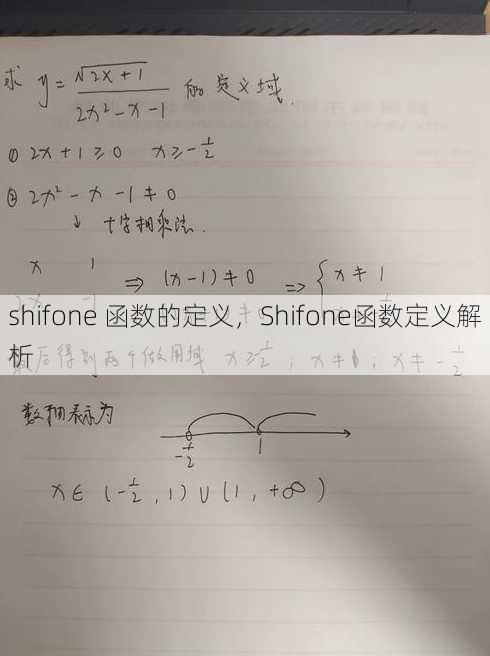 求 y = √(2x+1) / (2x²-x-1) 的定义域.
① 2x+1≥0 x≥-1/2
② 2x²-x-1≠0
↓ 十字相乘法.
x 1 ⇒ (x-1)≠0 ⇒ { x≠1
shifone 函数的定义，Shifone函数定义解
析
后得到两个做用域 x≥-1/2 ; x≠1 ; x≠-1/2
数轴表示为
-1/2 1
x∈(-1/2,1)∪(1,+∞)